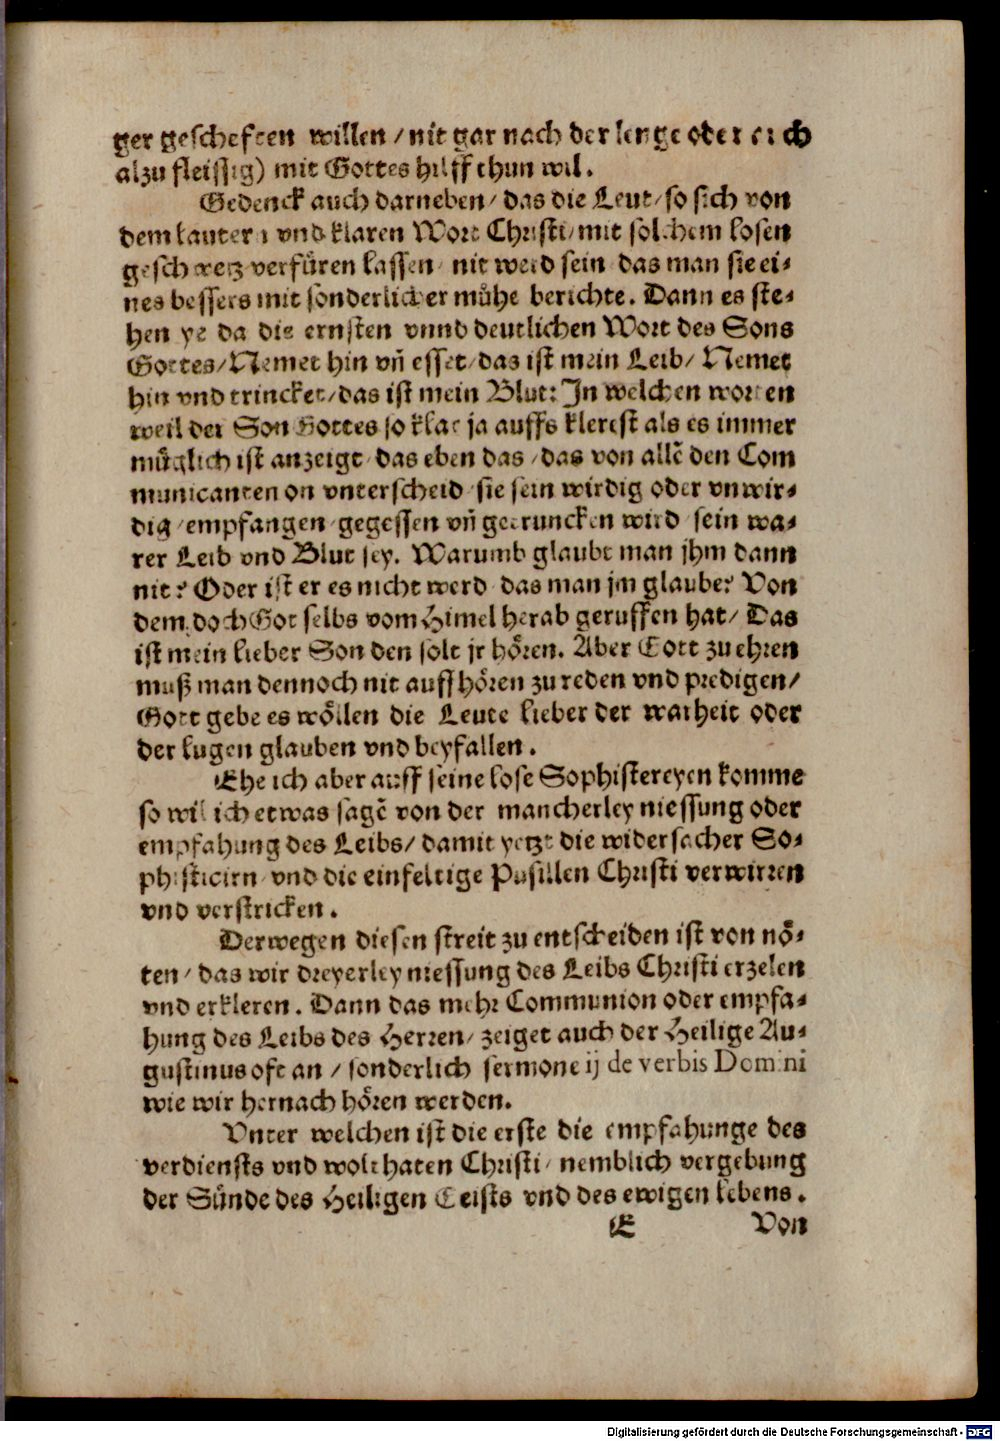 ger gescheften willen / nit gar nach der lenge oder auch
alzu fleissig) mit Gottes hilff thun wil.
Gedenck auch darneben / das die Leut / so sich von
dem lautern vnd klaren Wort Christi / mit solchem losen
geschwetz verfüren lassen / nit werd sein / das man sie ei⸗
nes bessers mit sonderlicher mühe berichte. Dann es ste⸗
hen ye da die ernsten vnnd deutlichen Wort des Sons
Gottes / Nemet hin vñ esset / das ist mein Leib / Nemet
hin vnd trincket / das ist mein Blut: In welchen worten
weil der Son Gottes so klar ja auffs klerest als es immer
müglich ist anzeigt / das eben das / das von allẽ den Com
municanten on vnterscheid / sie sein wirdig oder vnwir⸗
dig / empfangen / gegessen vñ getruncken wird / sein wa⸗
rer Leib vnd Blut sey. Warumb glaubt man jhm dann
nit? Oder ist er es nicht werd / das man jm glaube? Von
dem doch Got selbs vom Himel herab geruffen hat / Das
ist mein lieber Son den solt jr hören. Aber Gott zu ehren
muß man dennoch nit auffhören zu reden vnd predigen /
Gott gebe es wöllen die Leute lieber der warheit oder
der lugen glauben vnd beyfallen.
Ehe ich aber auff seine lose Sophistereyen komme
so wil ich etwas sagẽ von der mancherley niessung oder
empfahung des Leibs / damit yetzt die widersacher So⸗
phisticirn / vnd die einfeltige Pusillen Christi verwirren
vnd verstricken.
Derwegen diesen streit zu entscheiden ist von nö⸗
ten / das wir dreyerley niessung des Leibs Christi erzelen
vnd erkleren. Dann das mehr Communion oder empfa⸗
hung des Leibs des Herren / zeiget auch der Heilige Au⸗
gustinus oft an / sonderlich sermone ij de verbis Domini
wie wir hernach hören werden.
Vnter welchen ist die erste die empfahunge des
verdiensts vnd wolthaten Christi / nemblich vergebung
der Sünde des Heiligen Geists vnd des ewigen lebens.
E Von
Digitalisierung gefördert durch die Deutsche Forschungsgemeinschaft - DFG